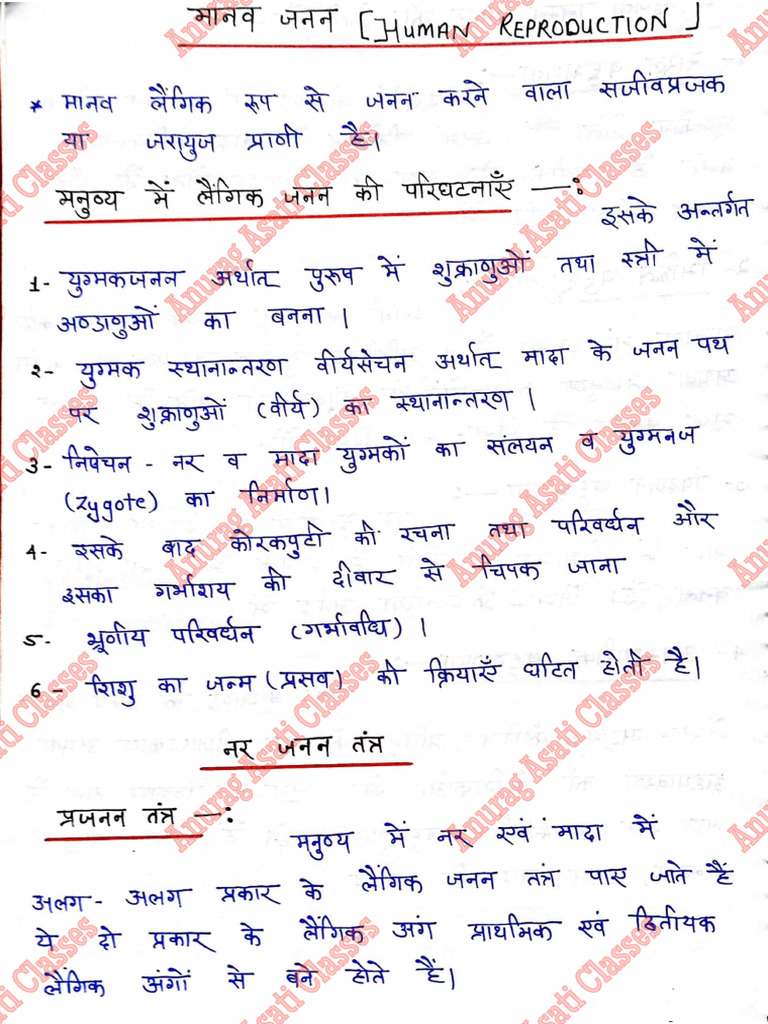 मानव जनन [HUMAN REPRODUCTION]
* मानव लैंगिक रूप से जनन करने वाला सजीवप्रजक
या जरायुज प्राणी है।
मनुष्य में लैंगिक जनन की परिघटनाएँ —:
इसके अन्तर्गत
1- युग्मकजनन अर्थात् पुरूष में शुक्राणुओं तथा स्त्री में
अण्डाणुओं का बनना।
2- युग्मक स्थानान्तरण वीर्यसेचन अर्थात् मादा के जनन पथ
पर शुक्राणुओं (वीर्य) का स्थानान्तरण।
3- निषेचन - नर व मादा युग्मकों का संलयन व युग्मनज
(zygote) का निर्माण।
4- इसके बाद कोरकपुटी की रचना तथा परिवर्धन और
इसका गर्भाशय की दीवार से चिपक जाना
5- भ्रूणीय परिवर्धन (गर्भावधि)।
6- शिशु का जन्म (प्रसव) की क्रियाएँ घटित होती है।
नर जनन तंत्र
प्रजनन तंत्र —:
मनुष्य में नर एवं मादा में
अलग - अलग प्रकार के लैंगिक जनन तंत्र पाए जाते हैं
ये दो प्रकार के लैंगिक अंग प्राथमिक एवं द्वितीयक
लैंगिक अंगों से बने होते हैं।
Anurag Asati Classes